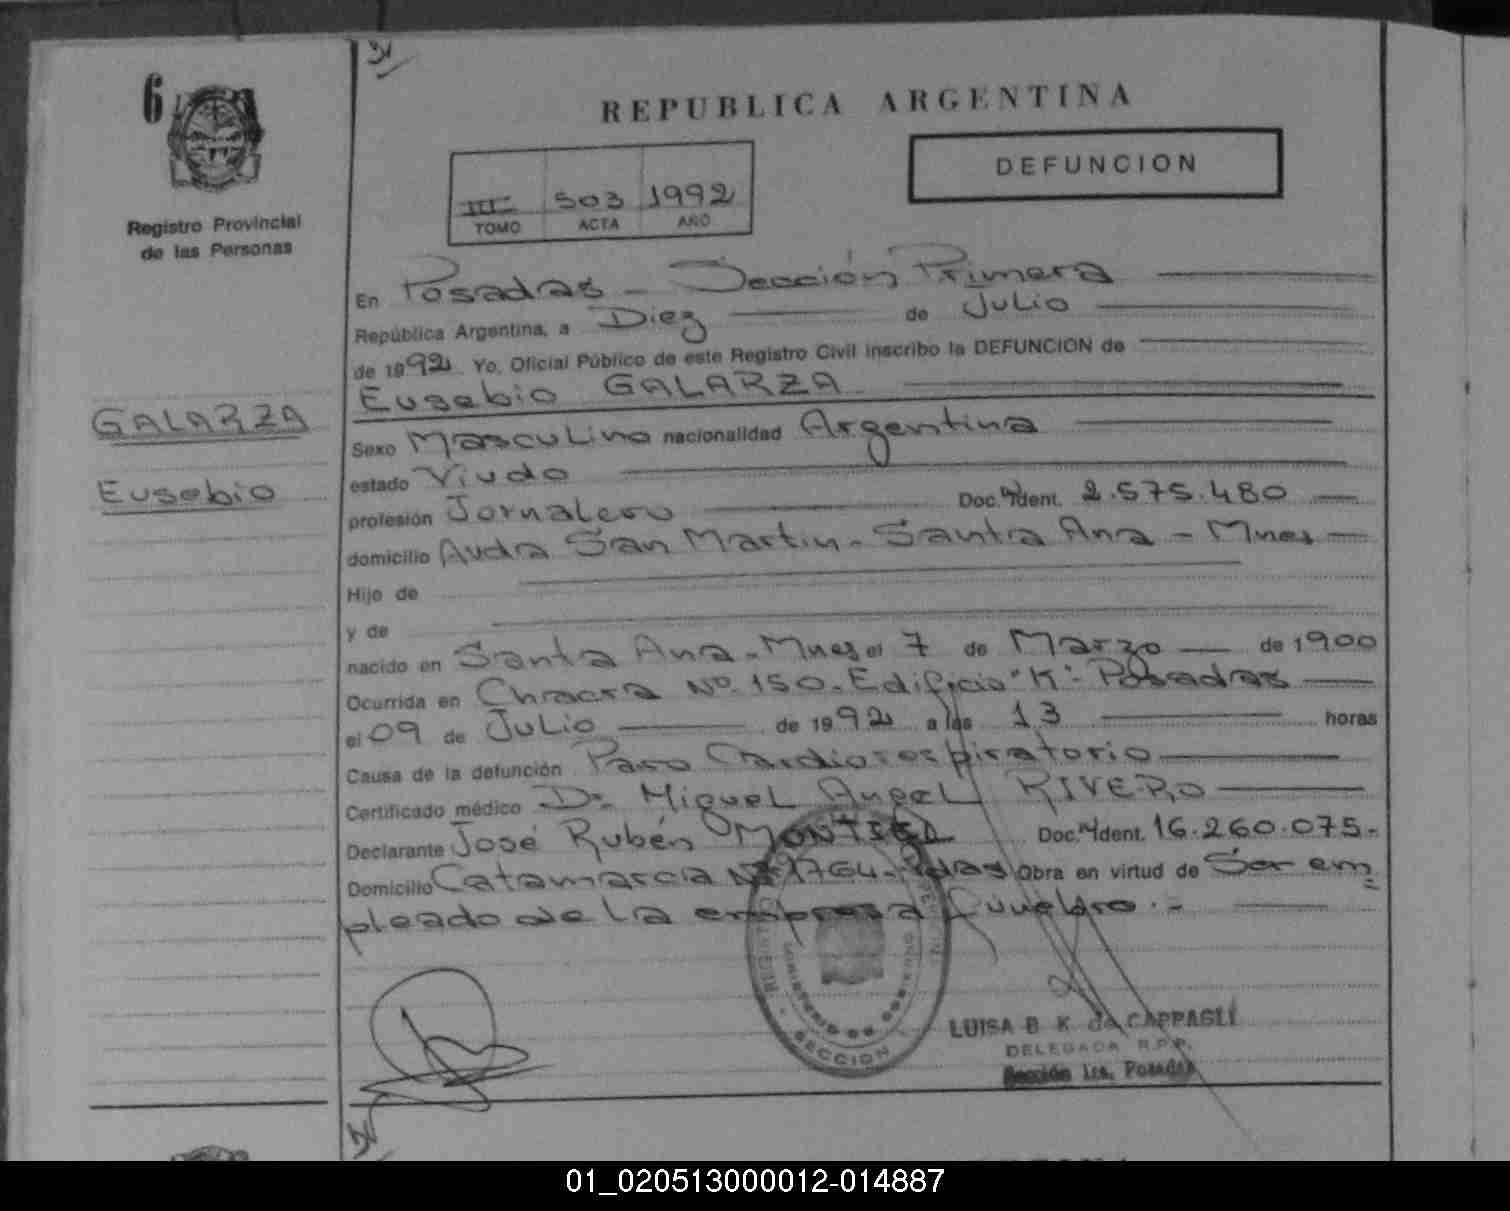 6
REPUBLICA ARGENTINA
DEFUNCION
III 503 1992
TOMO ACTA AÑO
Registro Provincial
de las Personas
En Posadas - Sección Primera
República Argentina, a Diez de Julio
de 1992 Yo, Oficial Público de este Registro Civil inscribo la DEFUNCION de
Eusebio GALARZA
GALARZA
Eusebio
Sexo Masculino nacionalidad Argentina
estado Viudo
profesión Jornalero Doc. Ident. 2.575.480
domicilio Avda San Martin - Santa Ana - Mnes
Hijo de
y de
nacido en Santa Ana - Mnes el 7 de Marzo de 1900
Ocurrida en Chacra Nº 150 - Edificio "K" - Posadas
el 09 de Julio de 1992 a las 13 horas
Causa de la defunción Paro Cardiorespiratorio
Certificado médico Dr. Miguel Angel RIVERO
Declarante José Rubén MONTIEL Doc. Ident. 16.260.075.-
Domicilio Catamarca Nº 1764 - Pdas Obra en virtud de Ser em=
pleado de la empresa fúnebre.-
MINISTERIO DE GOBIERNO
SECCION
LUISA B K de CAPPAGLI
DELEGADA R.P.P.
Sección 1ra. Posadas
01_020513000012-014887